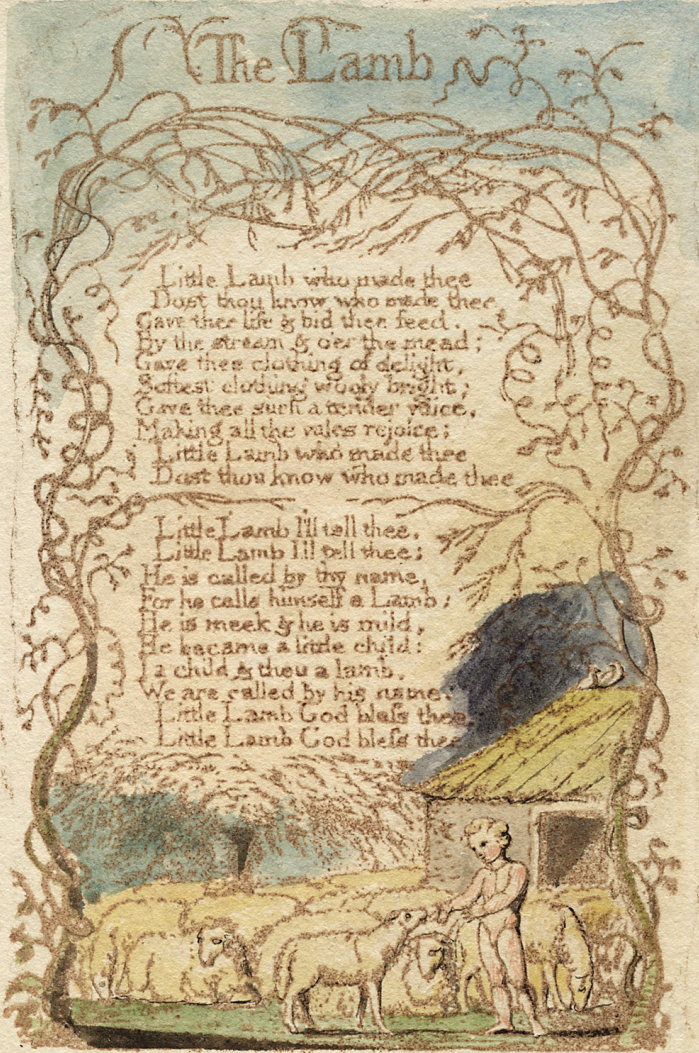 The Lamb
Little Lamb who made thee
Dost thou know who made thee
Gave thee life & bid thee feed.
By the stream & o'er the mead;
Gave thee clothing of delight,
Softest clothing wooly bright;
Gave thee such a tender voice,
Making all the vales rejoice;
Little Lamb who made thee
Dost thou know who made thee
Little Lamb I'll tell thee,
Little Lamb I'll tell thee;
He is called by thy name,
For he calls himself a Lamb;
He is meek & he is mild,
He became a little child:
I a child & thou a lamb,
We are called by his name.
Little Lamb God bless thee.
Little Lamb God bless thee.